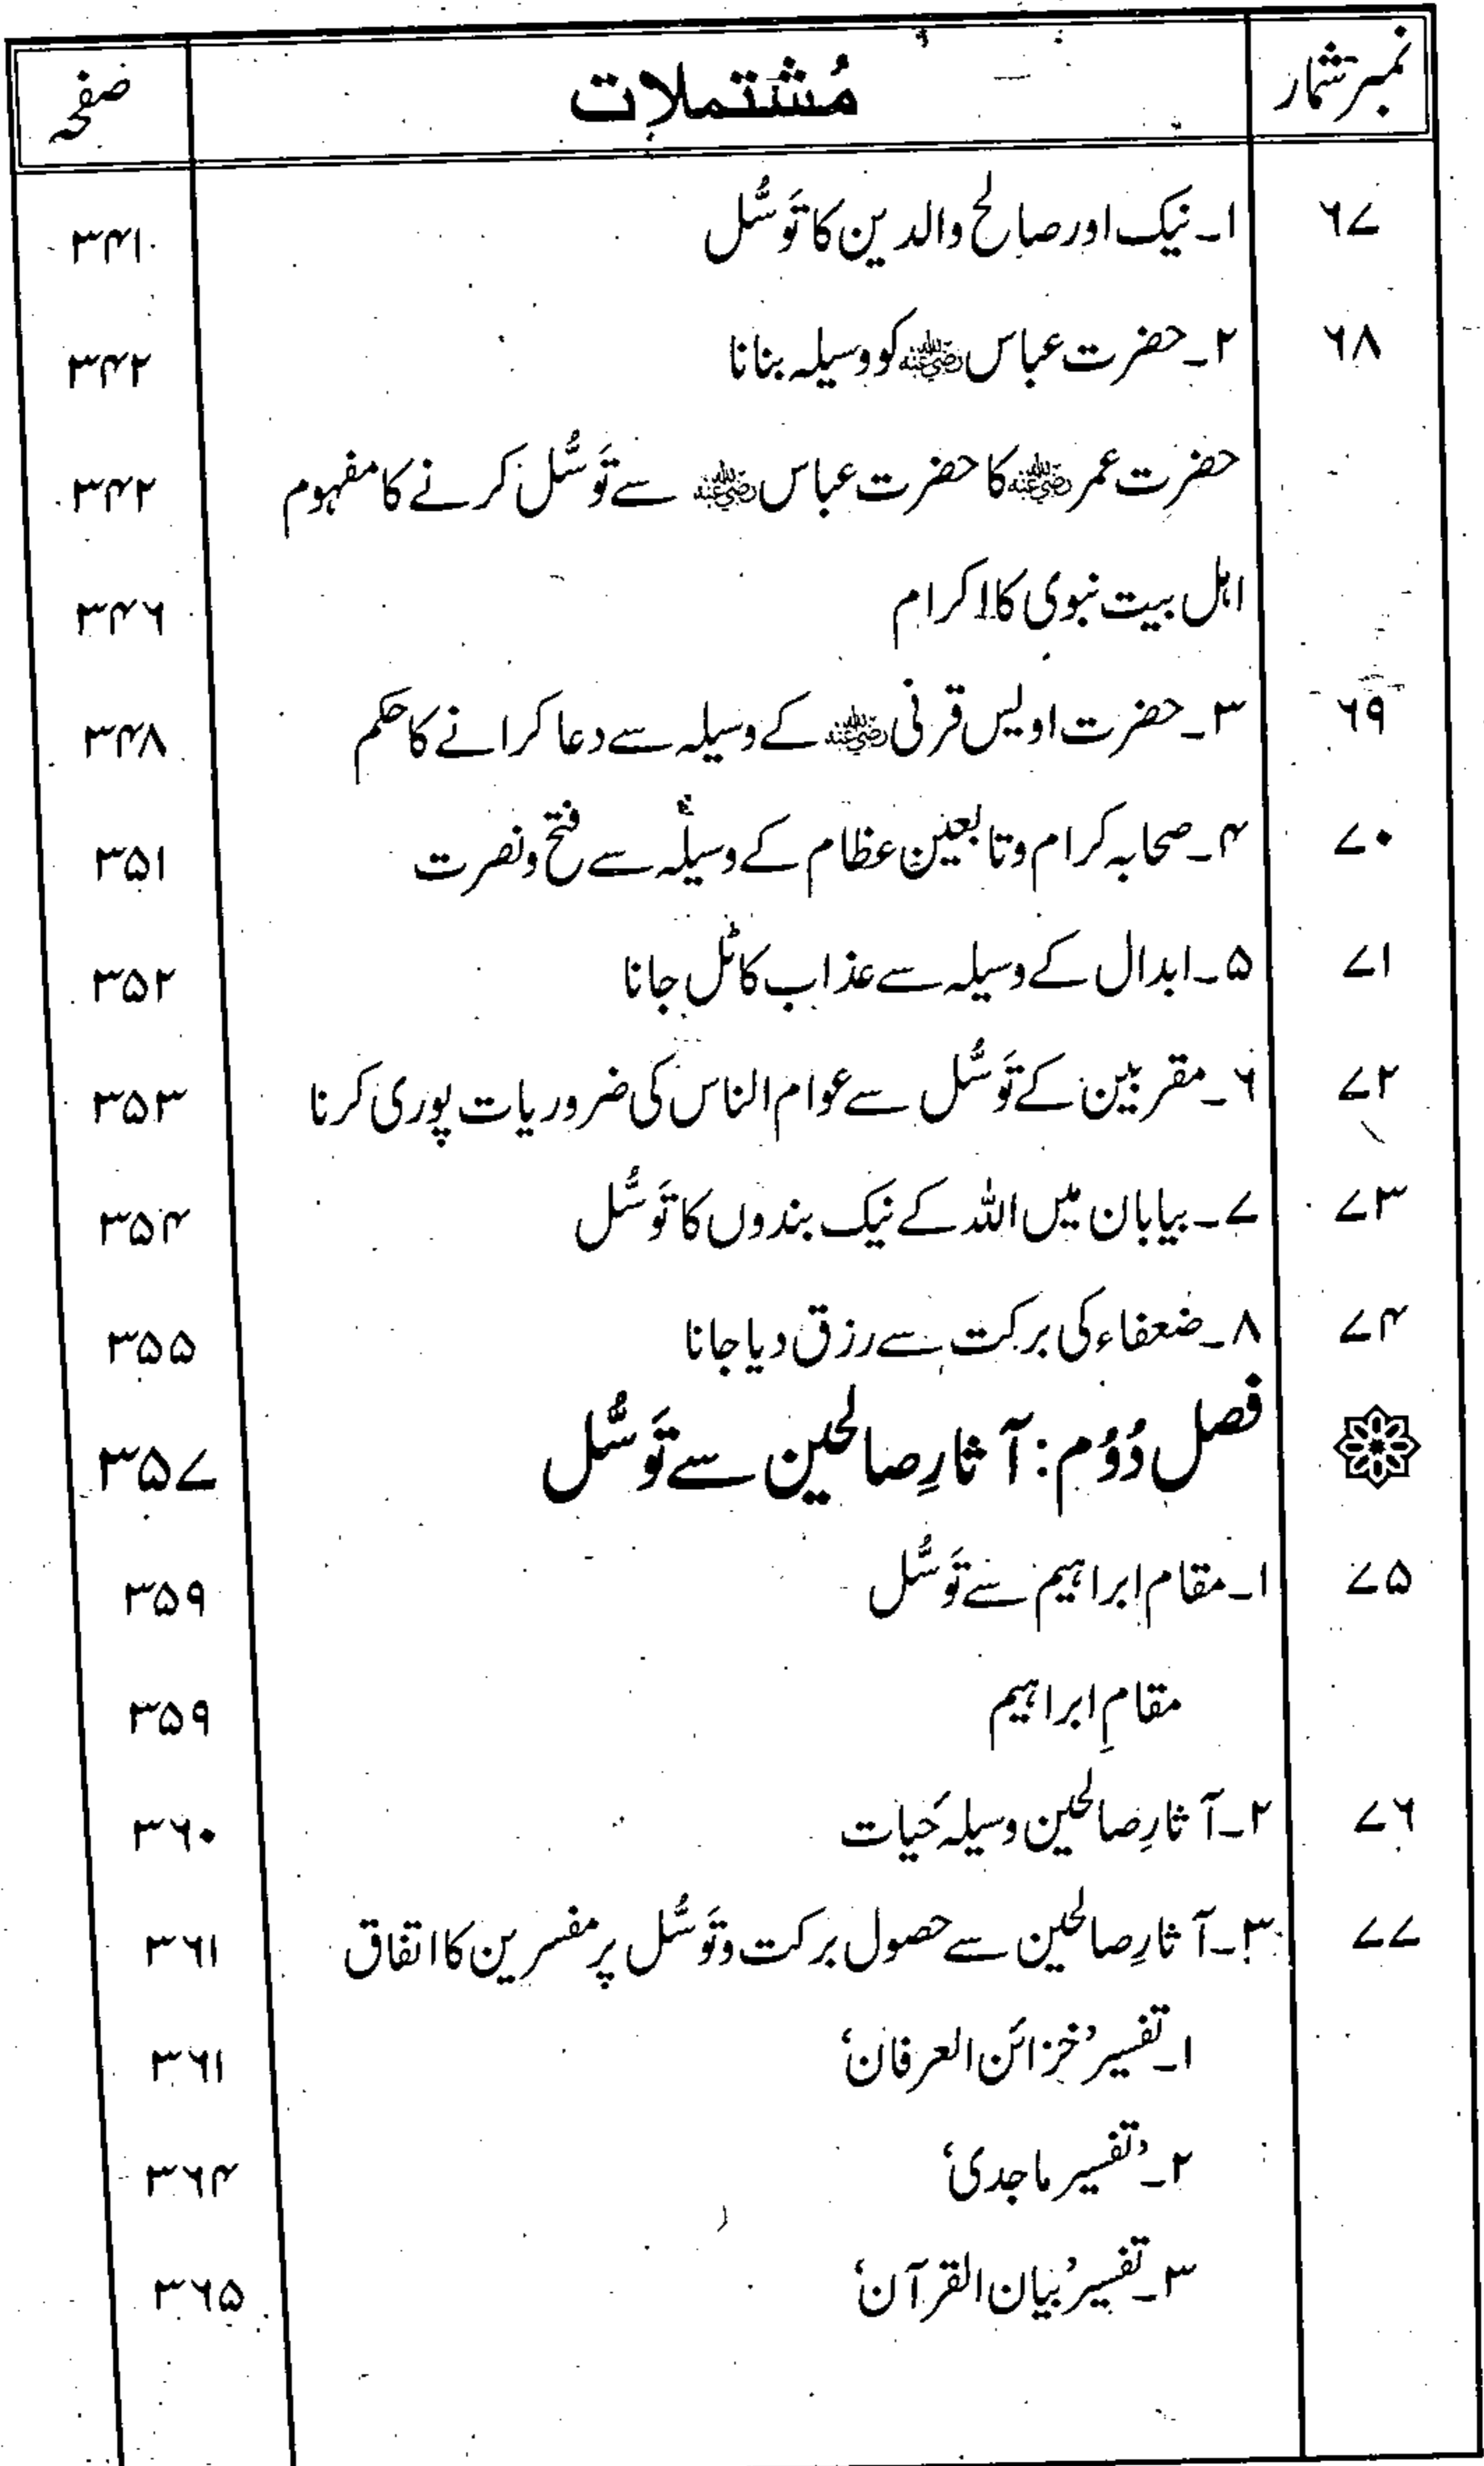 نمبر شمار مُشتملات صفحہ
۶۷ ۱۔ نیک اور صالح والدین کا توَسُّل ۳۴۱
۶۸ ۲۔ حضرت عباس رضی اللہ عنہ کو وسیلہ بنانا ۳۴۲
حضرت عمر رضی اللہ عنہ کا حضرت عباس رضی اللہ عنہ سے توَسُّل کرنے کا مفہوم ۳۴۲
اہل بیت نبوی کا اکرام ۳۴۶
۶۹ ۳۔ حضرت اویس قرنی رضی اللہ عنہ کے وسیلہ سے دعا کرانے کا حکم ۳۴۸
۷۰ ۴۔ صحابہ کرام و تابعین عظام کے وسیلہ سے فتح و نصرت ۳۵۱
۷۱ ۵۔ ابدال کے وسیلہ سے عذاب کا ٹل جانا ۳۵۲
۷۲ ۶۔ مقربین کے توَسُّل سے عوام الناس کی ضروریات پوری کرنا ۳۵۳
۷۳ ۷۔ بیابان میں اللہ کے نیک بندوں کا توَسُّل ۳۵۴
۷۴ ۸۔ ضعفاء کی برکت سے رزق دیا جانا ۳۵۵
فصل دُوُم: آثارِ صالحین سے توَسُّل ۳۵۷
۷۵ ۱۔ مقام ابراہیم سے توَسُّل ۳۵۹
مقامِ ابراہیم ۳۵۹
۷۶ ۲۔ آثارِ صالحین وسیلہ حَیات ۳۶۰
۷۷ ۳۔ آثارِ صالحین سے حصول برکت و توَسُّل پر مفسرین کا اتفاق ۳۶۱
۱۔ تفسیر ’خزائن العرفان‘ ۳۶۱
۲۔ ’تفسیر ماجدی‘ ۳۶۴
۳۔ تفسیر ’بیان القرآن‘ ۳۶۵